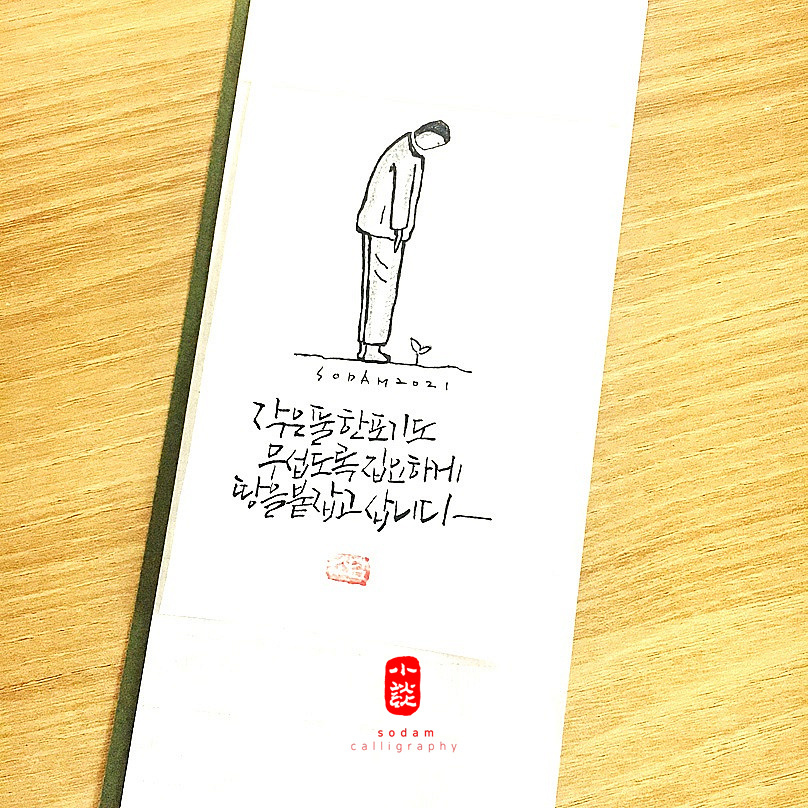 SODAM2021
작은풀한포기도
무섭도록집요하게
땅을붙잡고삽니다
小談
sodam
calligraphy